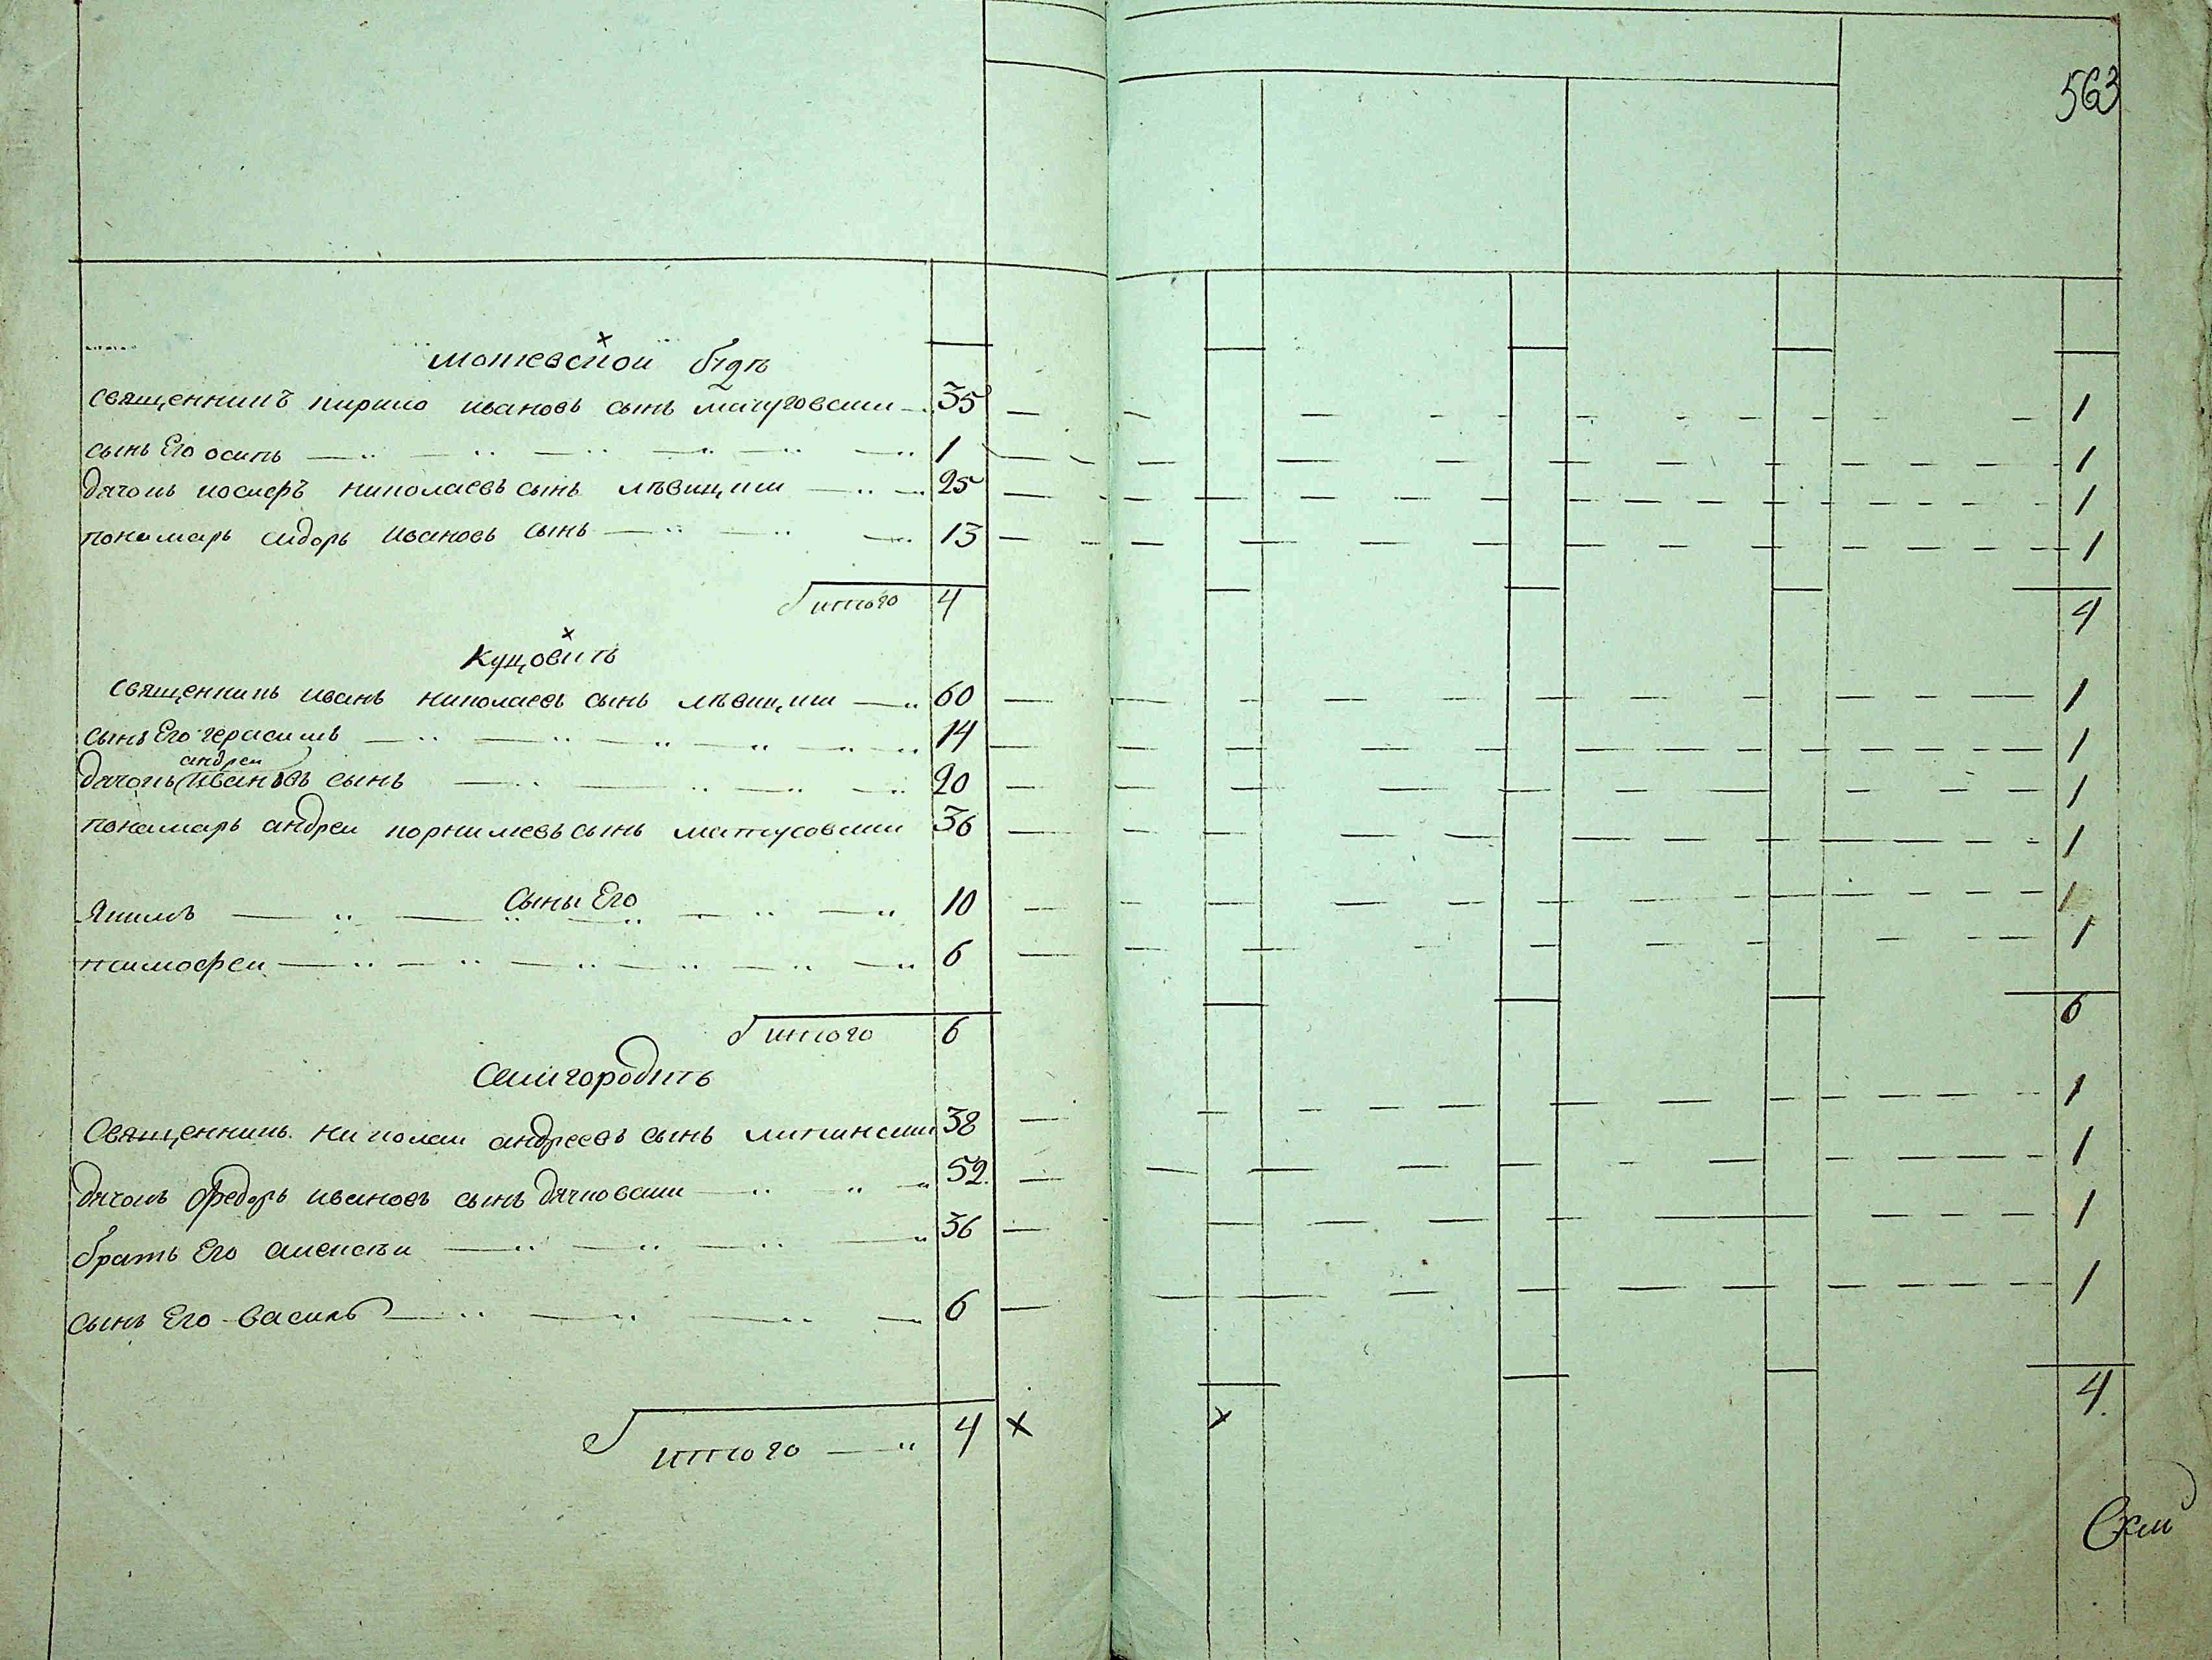 563
можевской будѣ
священникъ кирило ивановъ сынъ мачуговски 35 1
сынъ Его осипъ 1 1
дячокъ иосифъ николаевъ сынъ лѣвицки 25 1
пономарь сидоръ ивановъ сынъ 13 1
итого 4 4
куцовкѣ
священникъ иванъ николаевъ сынъ лѣвицки 60 1
сынъ Его герасимъ 14 1
андреи
дячокъ ивановъ сынъ 20 1
пономарь андреи корнилиевъ сынъ матусовски 36 1
сыны Его
Якимъ 10 1
тимофеи 6 1
итого 6 6
Самгородкѣ
Священникъ николаи андреевъ сынъ липински 38 1
дячокъ федоръ ивановъ сынъ дячковски 52 1
братъ Его алексѣи 36 1
сынъ Его василь 6 1
итого 4 4